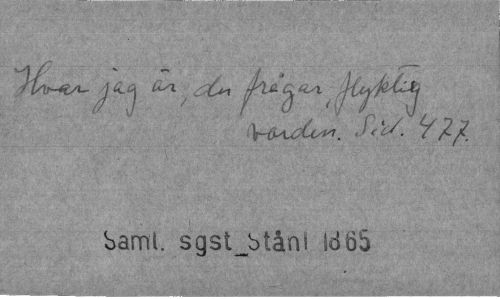 Hvar jag är, du frågar, flyktig
vorden. Sid. 477.
Saml. sgst_Ståhl 1865